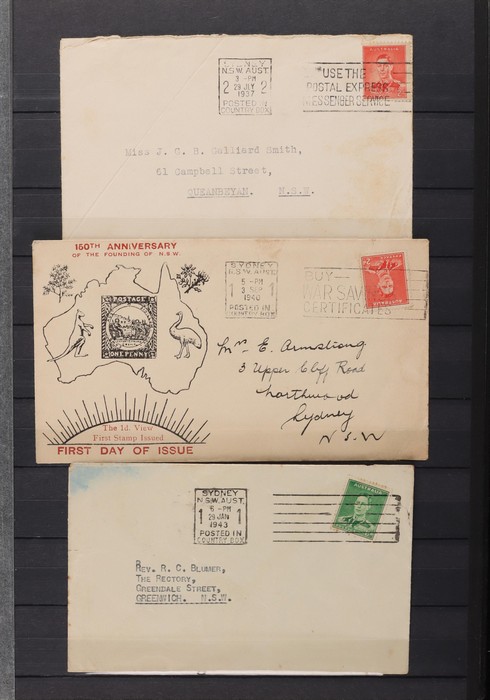 SYDNEY
N.S.W. AUST.
3 -PM
2 29 JLY 2
1937
POSTED IN
COUNTRY BOX
USE THE
POSTAL EXPRESS
MESSENGER SERVICE
AUSTRALIA
Miss J. C. S. Gelliard Smith,
61 Campbell Street,
QUEANBEYAN. N.S.W.
150TH ANNIVERSARY
OF THE FOUNDING OF N.S.W.
POSTAGE
ONE PENNY
The 1d. View
First Stamp Issued
FIRST DAY OF ISSUE
SYDNEY
N.S.W. AUST.
5 -PM
1 3 SEP 1
1940
POSTED IN
COUNTRY BOX
BUY
WAR SAVINGS
CERTIFICATES
AUSTRALIA
Mrs. E. Armstrong
3 Upper Cliff Road
Northwood
Sydney
N.S.W
SYDNEY
N.S.W. AUST.
6 -PM
1 29 JAN 1
1943
POSTED IN
COUNTRY BOX
AUSTRALIA
Rev. R. C. Blumer,
The Rectory,
Greendale Street,
GREENWICH. N.S.W.